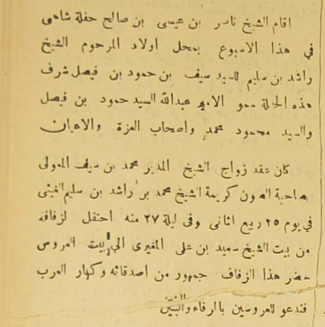 اقام الشيخ ناصر بن عيسى بن صالح حفلة شاهى
في هذا الاسبوع بمحل اولاد المرحوم الشيخ
راشد بن سليم للسيد سيف بن حمود بن فيصل شرف
هذه الحفلة سمو الامير عبدالله السيد حمود بن فيصل
والسيد محمود محمد واصحاب العزة والاعيان
كان عقد زواج الشيخ المدبر محمد بن سيف المعولى
بصاحبة الصون كريمة الشيخ محمد بن راشد بن سليم الغيثى
في يوم ٢٥ ربيع الثانى وفى ليلة ٢٧ منه احتفل لزفافه
من بيت الشيخ سعيد بن على المغيرى الى بيت العروس
حضر هذا الزفاف جمهور من اصدقائه وكبار العرب
فندعو للعروسين بالرفاء والبنين